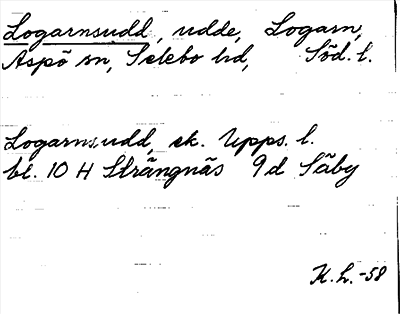 Logarnsudd, udde, Logarn,
Aspö sn, Selebo hd, Söd. l.
Logarnsudd, ek. Upps. l.
bl. 10 H Strängnäs 9d Säby
K.L.-58